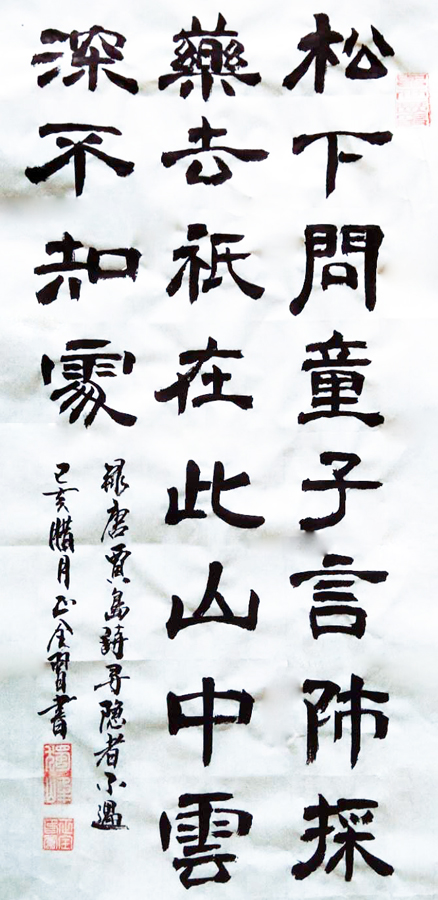 松下問童子言师採
藥去祇在此山中雲
深不知處
録唐賈島詩寻隐者不遇
己亥腊月正全習書